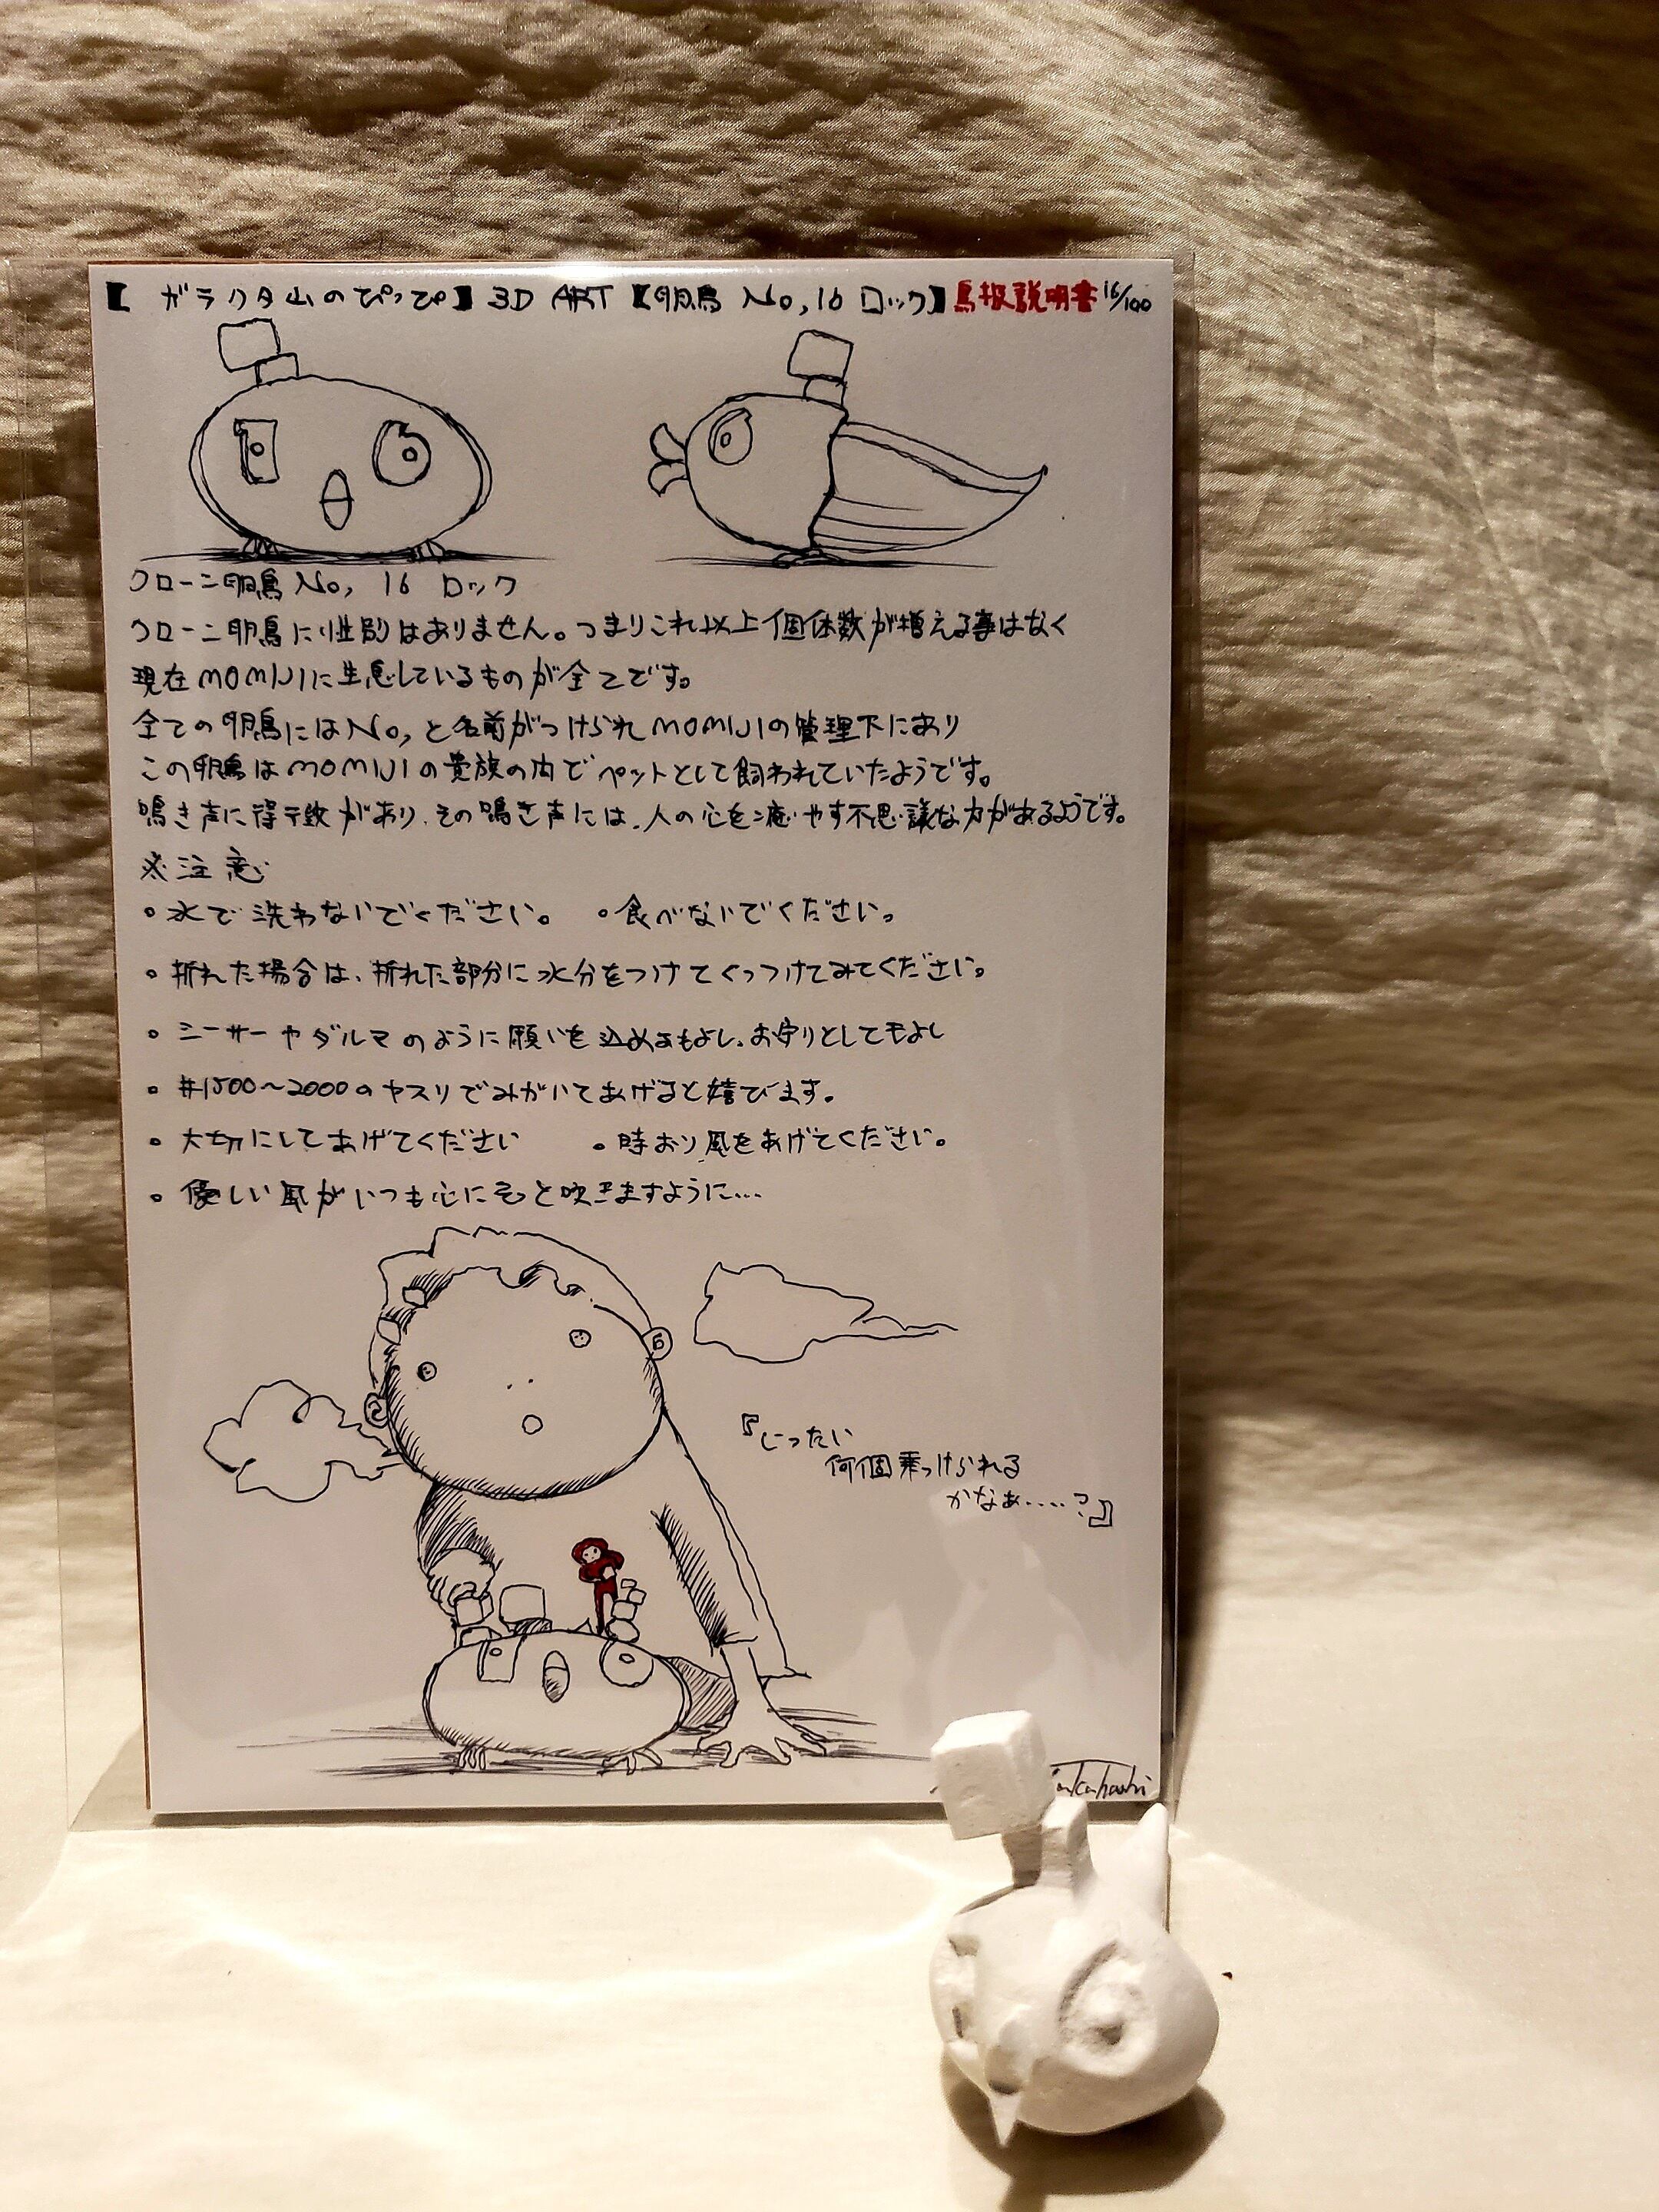 【ガラクタ山のぴっぴ】3D ART【卵鳥 No,16 ロック】鳥扱説明書 16/100
クローン卵鳥 No, 16 ロック
クローン卵鳥に性別はありません。つまりこれ以上個体数が増える事はなく
現在MOMIJIに生息しているものが全てです。
全ての卵鳥にはNo,と名前がつけられMOMIJIの管理下にあり
この卵鳥はMOMIJIの貴族の内でペットとして飼われていたようです。
鳴き声に特徴があり、その鳴き声には、人の心を癒やす不思議な力があるようです。
※注意
・水で洗わないでください。 ・食べないでください。
・折れた場合は、折れた部分に水分をつけてくっつけてみてください。
・シーサーやダルマのように願いを込めるもよし、お守りとしてもよし
・#1500〜2000のヤスリでみがいてあげると喜びます。
・大切にしてあげてください ・時おり風をあげてください。
・優しい風がいつも心にそっと吹きますように…
『いったい
何個乗っけられる
かなぁ....?』